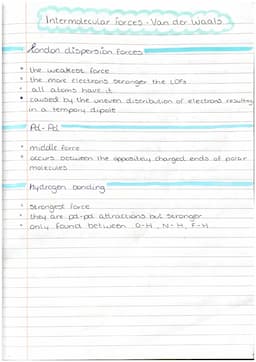 Intermolecular forces - Van der Waals
London dispersion forces
• the weakest force
• the more electrons stronger the LDFs
• all atoms have it
• caused by the uneven distribution of electrons resulting
in a tempory dipole
Pd - Pd
• middle force
• occurs between the oppositely charged ends of polar
molecules
Hydrogen bonding
• strongest force
• they are pd-pd attractions but stronger
• only found between O-H, N-H, F-H